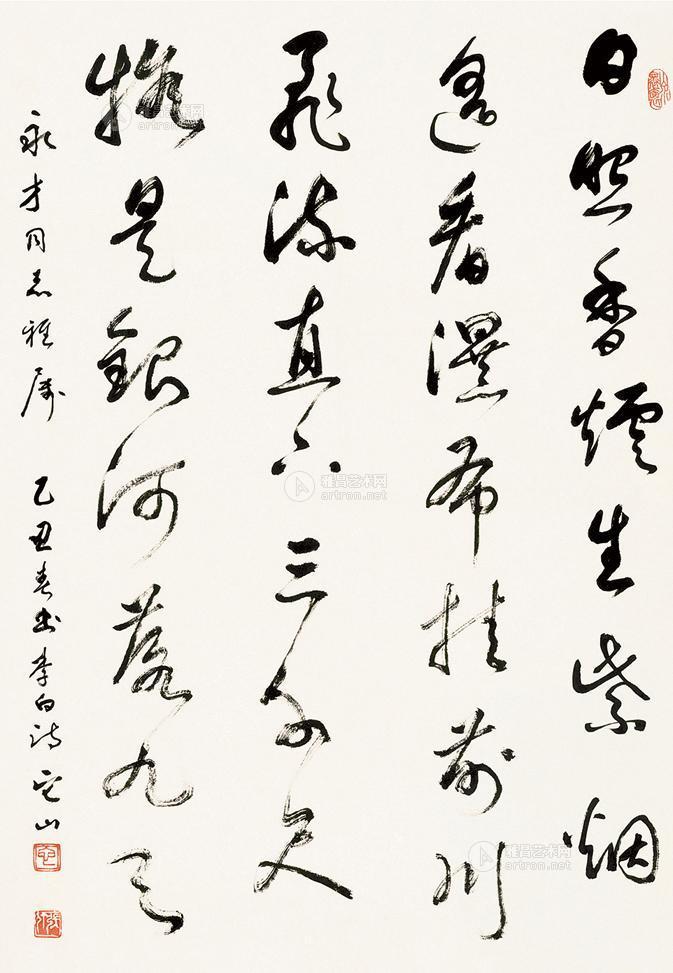 日照香爐生紫烟
遥看瀑布挂前川
飛流直下三千尺
擬是銀河落九天
永才同志雅属 乙丑春书李白詩
雅昌艺术网
artron.net
雅昌艺术网
artron.net
雅昌艺术网
artron.net